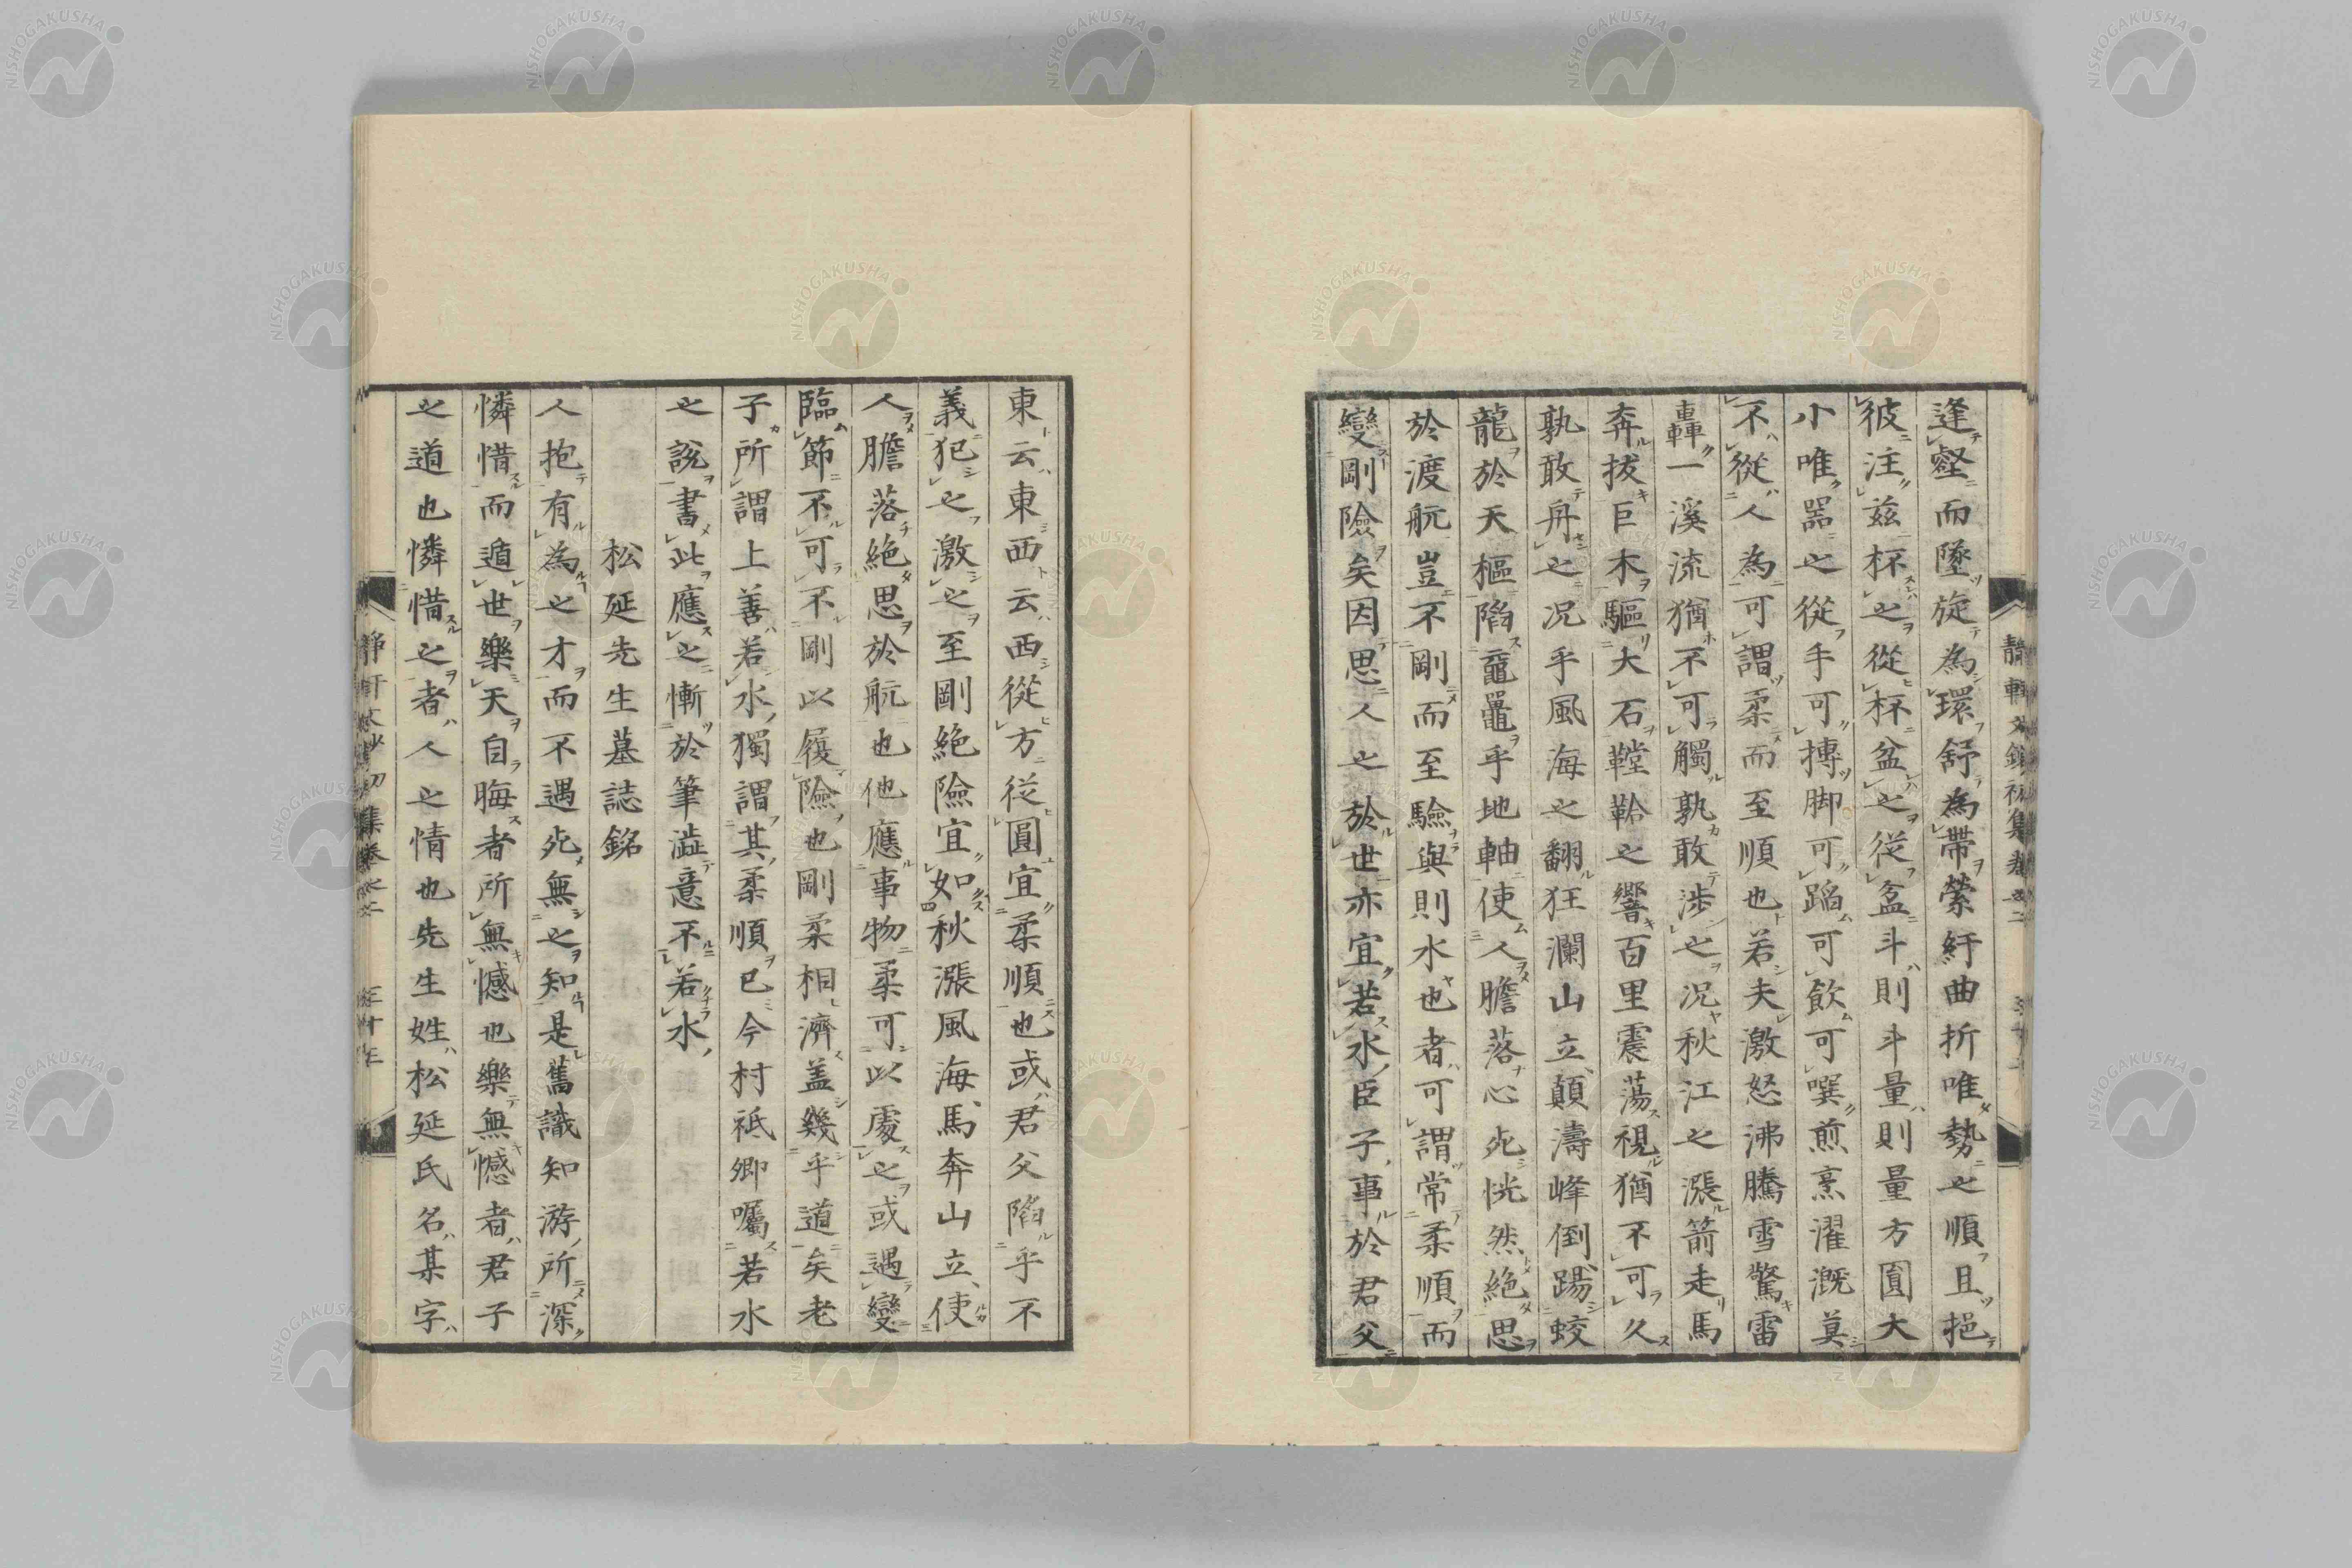 逢壑而墜旋為環舒為帶縈紆曲折唯勢之順且挹
彼注茲杯之從杯盆之從盆斗則斗量則量方圓大
小唯器之從手可摶脚可蹈可飲可噀煎烹濯漑莫
不從人為可謂柔而至順也若夫激怒沸騰雪驚雷
轟一溪流猶不可觸孰敢渉之况秋江之漲箭走馬
奔拔巨木驅大石鞺鞳之響百里震蕩視猶不可久
孰敢舟之况乎風海之翻狂瀾山立顛濤峰倒踢蛟
龍於天樞陷黿鼉乎地軸使人膽落心死恍然絶思
於渡航豈不剛而至驗與則水也者可謂常柔順而
變剛險矣因思人之於世亦宜若水臣子事於君父
東云東西云西從方從圓宜柔順也或君父陷乎不
義犯之激之至剛絶險宜如秋漲風海馬奔山立使
人膽落絶思於航也他應事物柔可以處之或遇變
臨節不可不剛以履險也剛柔相濟盖幾乎道矣老
子所謂上善若水獨謂其柔順已今村祗卿囑若水
之說書此應之慚於筆澁意不若水
松延先生墓誌銘
人抱有為之才而不遇死無之知是舊識知游所深
憐惜而遁世樂天自晦者所無憾也樂無憾者君子
之道也憐惜之者人之情也先生姓松延氏名某字